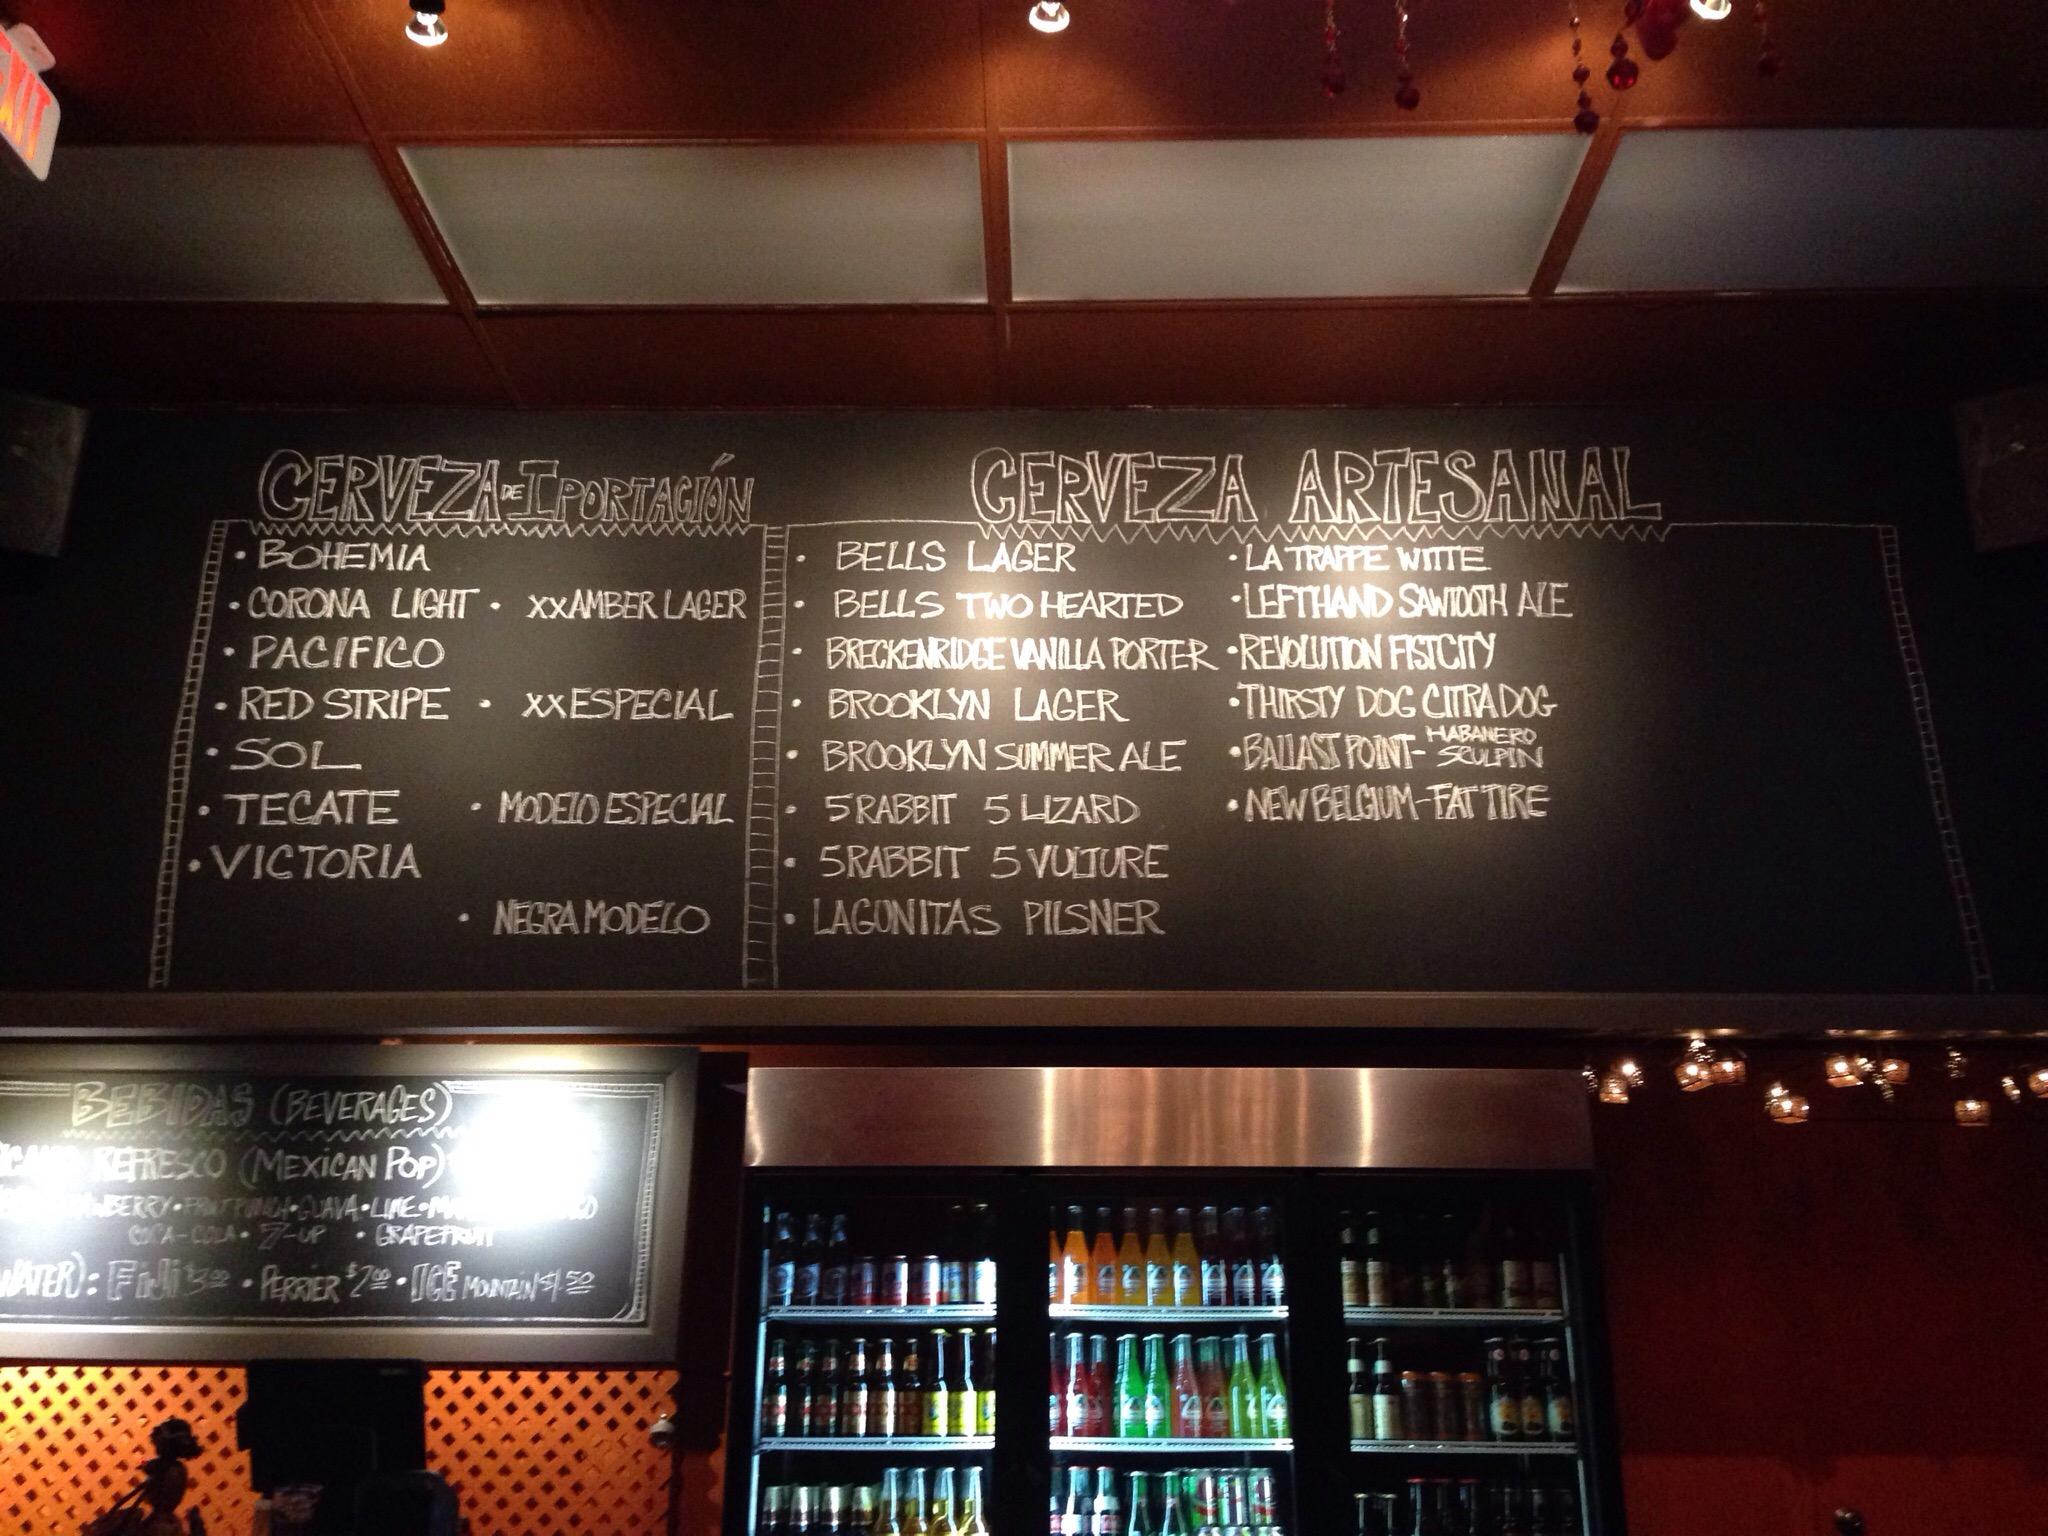 EXIT
CERVEZA DE IPORTACIÓN
• BOHEMIA
• CORONA LIGHT • XX AMBER LAGER
• PACIFICO
• RED STRIPE • XX ESPECIAL
• SOL
• TECATE • MODELO ESPECIAL
• VICTORIA
• NEGRA MODELO
CERVEZA ARTESANAL
• BELLS LAGER
• BELLS TWO HEARTED
• BRECKENRIDGE VANILLA PORTER
• BROOKLYN LAGER
• BROOKLYN SUMMER ALE
• 5 RABBIT 5 LIZARD
• 5 RABBIT 5 VULTURE
• LAGUNITAS PILSNER
• LA TRAPPE WITTE
• LEFTHAND SAWTOOTH ALE
• REVOLUTION FISTCITY
• THIRSTY DOG CITRA DOG
• BALLAST POINT - HABANERO SCULPIN
• NEW BELGIUM - FAT TIRE
BEBIDAS (BEVERAGES)
REFRESCO (MEXICAN POP)
• FRUIT PUNCH • GUAVA • LIME •
COCA-COLA • 7-UP • GRAPEFRUIT
WATER): FIJI $3.00 • PERRIER $2.00 • ICE MOUNTAIN $1.50